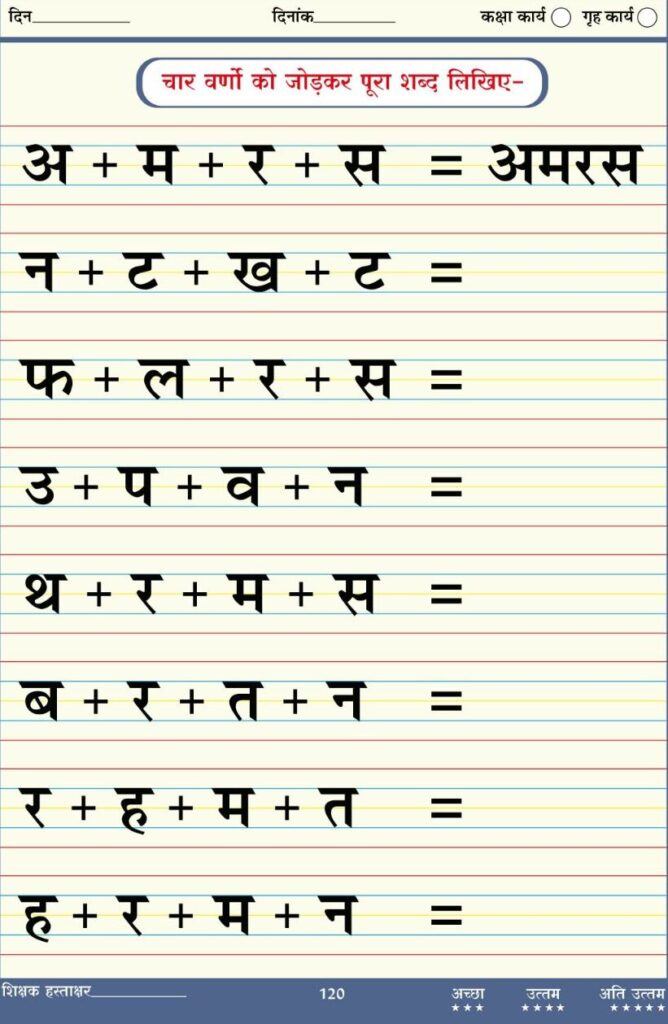 दिन__________ दिनांक__________ कक्षा कार्य ◯ गृह कार्य ◯
चार वर्णो को जोड़कर पूरा शब्द लिखिए-
अ + म + र + स = अमरस
न + ट + ख + ट =
फ + ल + र + स =
उ + प + व + न =
थ + र + म + स =
ब + र + त + न =
र + ह + म + त =
ह + र + म + न =
शिक्षक हस्ताक्षर__________ 120 अच्छा उत्तम अति उत्तम
★★★ ★★★★ ★★★★★